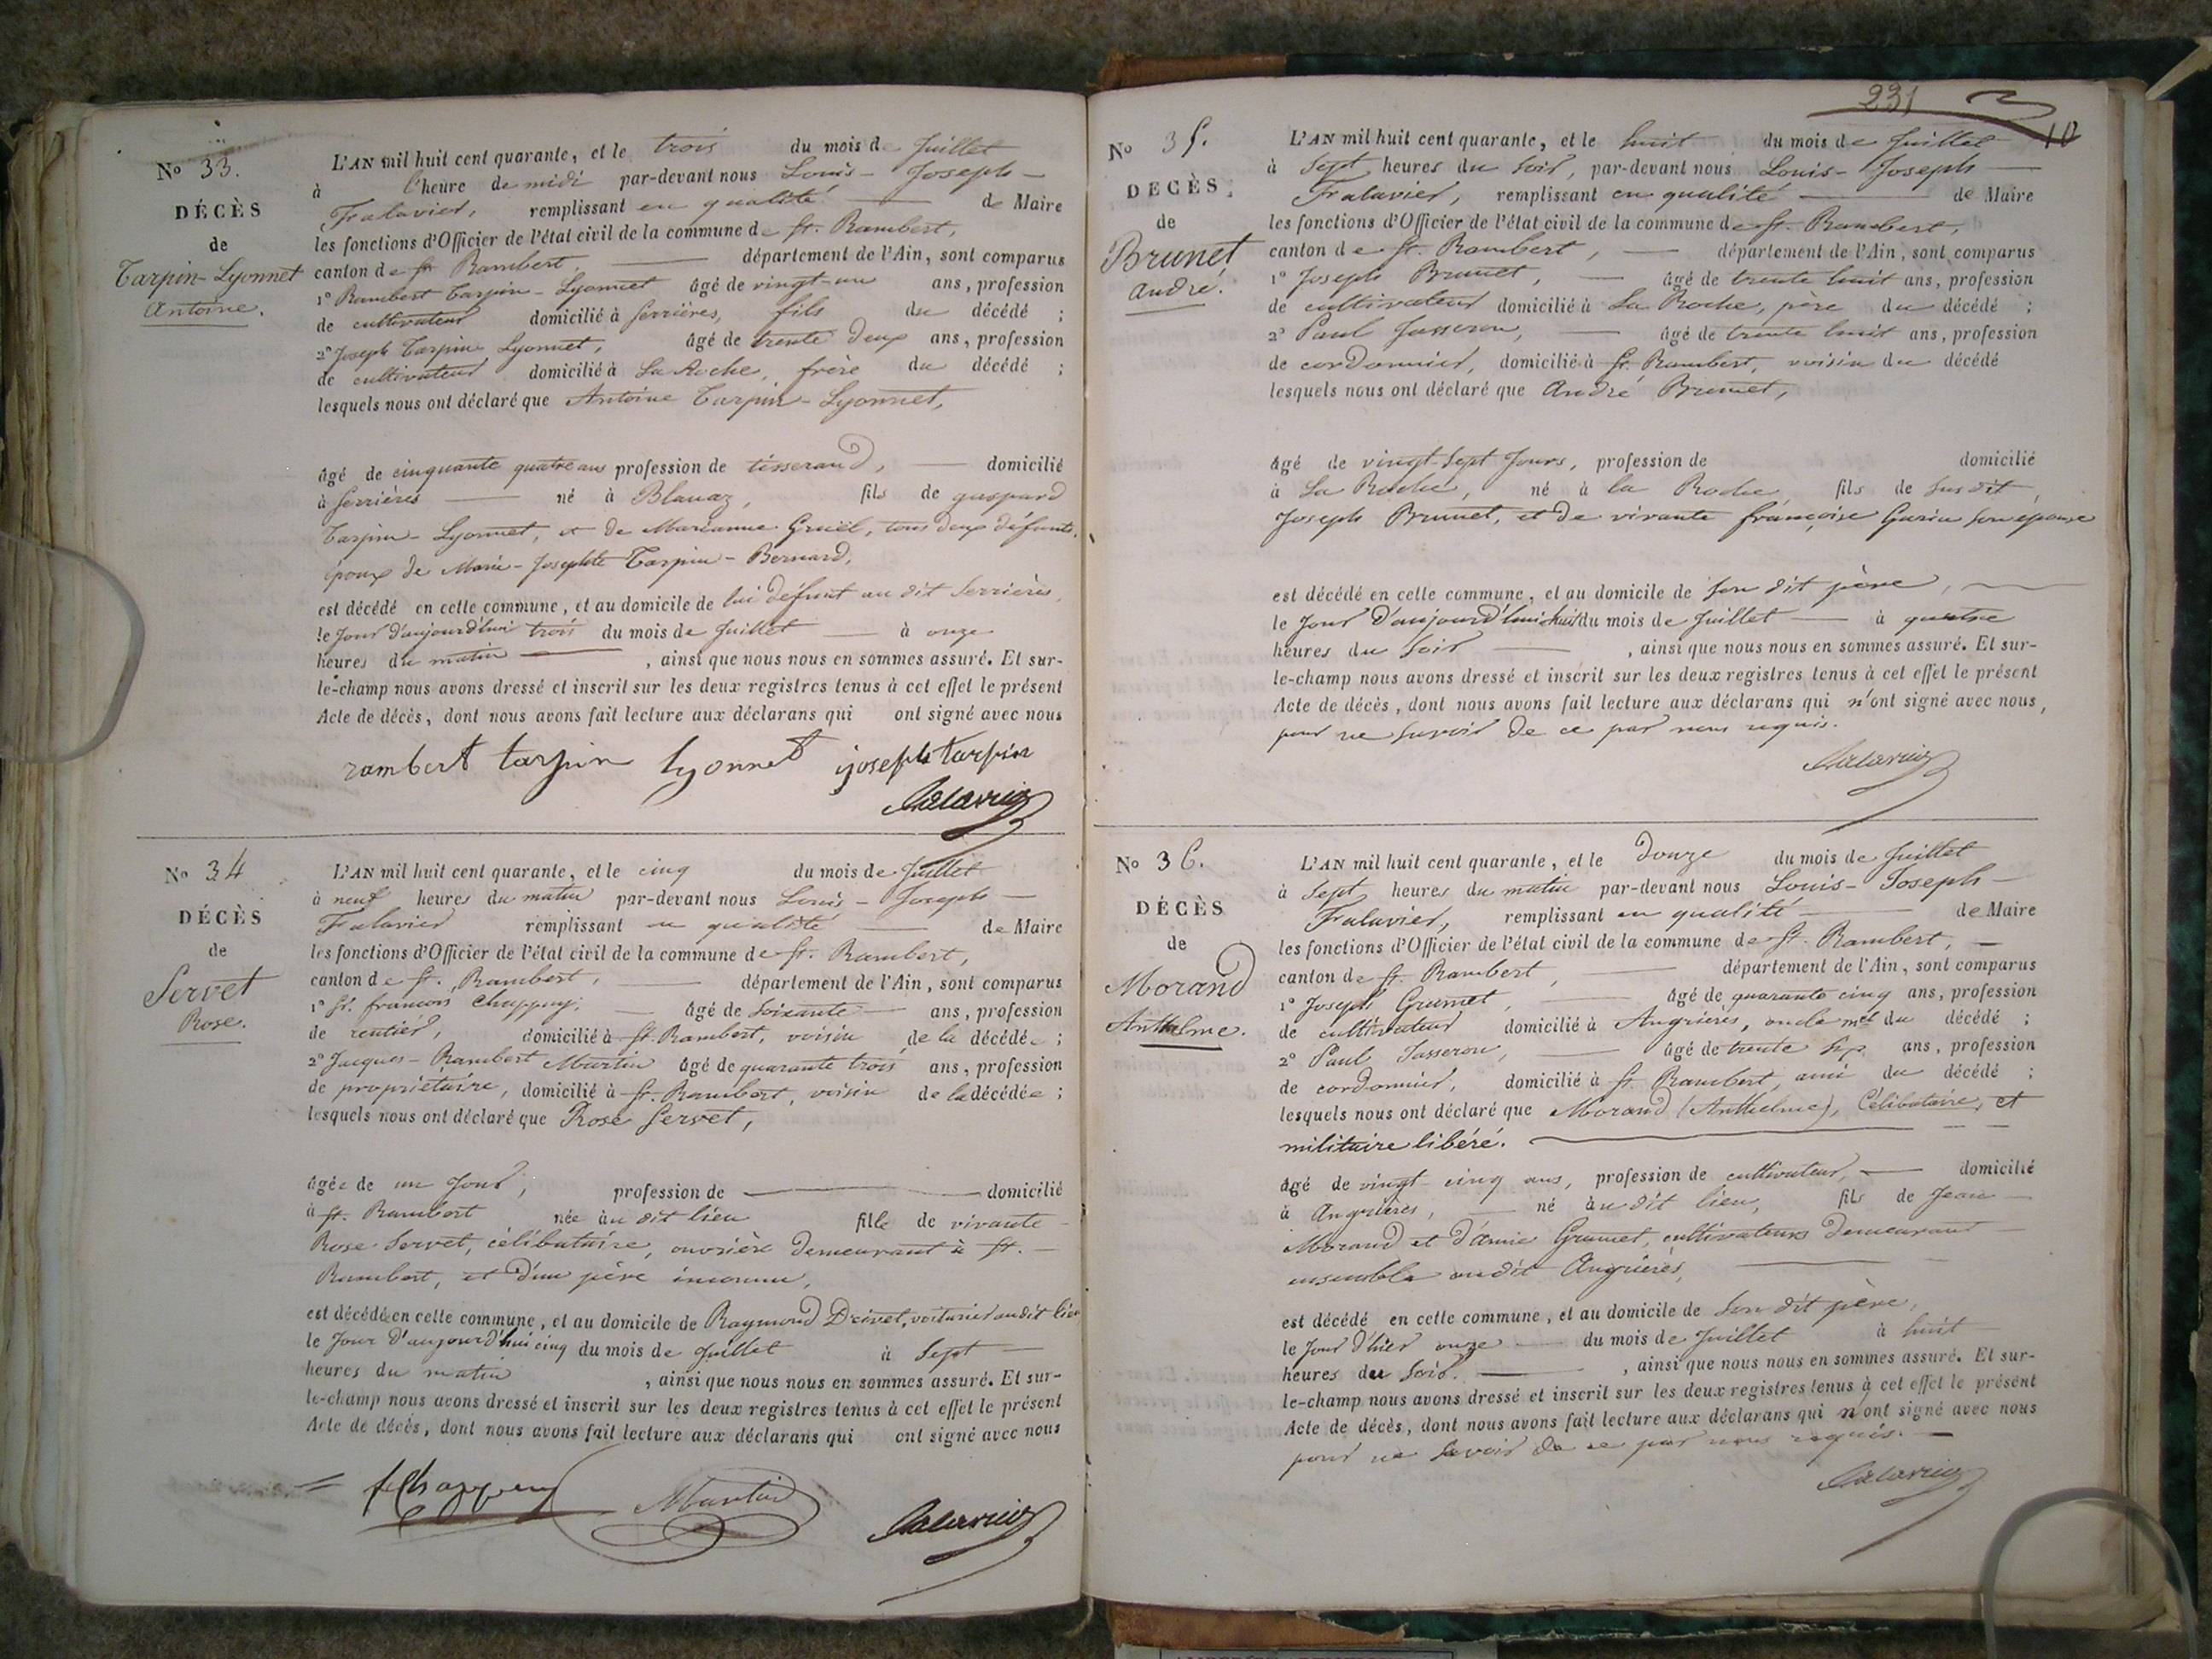 No 33.
DÉCÈS
de
Tarpin-Lyonnet
Antoine.
L'AN mil huit cent quarante, et le trois du mois de Juillet
à l'heure de midi par-devant nous Louis-Joseph
Falavier, remplissant en qualité de Maire
les fonctions d'Officier de l'état civil de la commune de St. Rambert,
canton de St. Rambert, département de l'Ain, sont comparus
1° Rambert Tarpin-Lyonnet âgé de vingt-un ans, profession
de cultivateur domicilié à Serrières, fils du décédé ;
2° Joseph Tarpin Lyonnet, âgé de trente deux ans, profession
de cultivateur domicilié à La Roche, frère du décédé ;
lesquels nous ont déclaré que Antoine Tarpin-Lyonnet,
âgé de cinquante quatre ans profession de tisserand, domicilié
à Serrières né à Blanaz, fils de gaspard
Tarpin-Lyonnet, et de Marianne Gruel, tous deux défunts,
époux de Marie-Josephte Tarpin-Bernard,
est décédé en cette commune, et au domicile de lui défunt au dit Serrières,
le Jour d'aujourd'hui trois du mois de Juillet à onze
heures du matin, ainsi que nous nous en sommes assuré. Et sur-
le-champ nous avons dressé et inscrit sur les deux registres tenus à cet effet le présent
Acte de décès, dont nous avons fait lecture aux déclarans qui ont signé avec nous
rambert tarpin lyonnet joseph tarpin
Falavier
No 34
DÉCÈS
de
Servet
Rose.
L'AN mil huit cent quarante, et le cinq du mois de Juillet
à neuf heures du matin par-devant nous Louis-Joseph
Falavier remplissant en qualité de Maire
les fonctions d'Officier de l'état civil de la commune de St. Rambert,
canton de St. Rambert, département de l'Ain, sont comparus
1° Sr. francois Chappuy, âgé de Soixante ans, profession
de rentier, domicilié à St. Rambert, voisin de la décédée ;
2° Jacques-Rambert Martin âgé de quarante trois ans, profession
de propriétaire, domicilié à St. Rambert, voisin de la décédée ;
lesquels nous ont déclaré que Rose Servet,
âgée de un Jour, profession de domicilié
à St. Rambert née au dit lieu fille de vivante
Rose Servet, célibataire, ouvrière demeurant à St.
Rambert, et d'un père inconnu,
est décédée en cette commune, et au domicile de Raymond Drivet, voiturier audit lieu
le Jour d'aujourd'hui cinq du mois de Juillet à Sept
heures du matin, ainsi que nous nous en sommes assuré. Et sur-
le-champ nous avons dressé et inscrit sur les deux registres tenus à cet effet le présent
Acte de décès, dont nous avons fait lecture aux déclarans qui ont signé avec nous
Martin
Falavier
231
10
No 35.
DÉCÈS
de
Brunet
André.
L'AN mil huit cent quarante, et le huit du mois de Juillet
à Sept heures du Soir, par-devant nous Louis-Joseph
Falavier, remplissant en qualité de Maire
les fonctions d'Officier de l'état civil de la commune de St. Rambert,
canton de St. Rambert, département de l'Ain, sont comparus
1° Joseph Brunet, âgé de trente huit ans, profession
de cultivateur domicilié à La Roche, père du décédé ;
2° Paul Jasseron, âgé de trente huit ans, profession
de cordonnier, domicilié à St. Rambert, voisin du décédé
lesquels nous ont déclaré que André Brunet,
âgé de vingt-Sept Jours, profession de domicilié
à La Roche, né à la Roche, fils de Susdit
Joseph Brunet, et de vivante françoise Garin son épouse
est décédé en cette commune, et au domicile de Son dit père,
le Jour d'aujourd'hui huit du mois de Juillet à quatre
heures du Soir, ainsi que nous nous en sommes assuré. Et sur-
le-champ nous avons dressé et inscrit sur les deux registres tenus à cet effet le présent
Acte de décès, dont nous avons fait lecture aux déclarans qui n'ont signé avec nous,
pour ne Savoir de ce par nous requis.
Falavier
No 36.
DÉCÈS
de
Morand
Anthelme.
L'AN mil huit cent quarante, et le douze du mois de Juillet
à Sept heures du matin par-devant nous Louis-Joseph
Falavier, remplissant en qualité de Maire
les fonctions d'Officier de l'état civil de la commune de St. Rambert,
canton de St. Rambert, département de l'Ain, sont comparus
1° Joseph Grumet, âgé de quarante cinq ans, profession
de cultivateur domicilié à Angrières, oncle mel du décédé ;
2° Paul Jasseron, âgé de trente Sep ans, profession
de cordonnier, domicilié à St. Rambert, ami du décédé ;
lesquels nous ont déclaré que Morand (Anthelme), Célibataire, et
militaire libéré.
âgé de vingt cinq ans, profession de cultivateur, domicilié
à Angrières, né au dit lieu, fils de Jean
Morand et d'Annie Grumet, cultivateurs demeurant
ensemble audit Angrières,
est décédé en cette commune, et au domicile de Son dit père,
le Jour d'hier onze du mois de Juillet à huit
heures du Soir, ainsi que nous nous en sommes assuré. Et sur-
le-champ nous avons dressé et inscrit sur les deux registres tenus à cet effet le présent
Acte de décès, dont nous avons fait lecture aux déclarans qui n'ont signé avec nous
pour ne Savoir de ce par nous requis.
Falavier